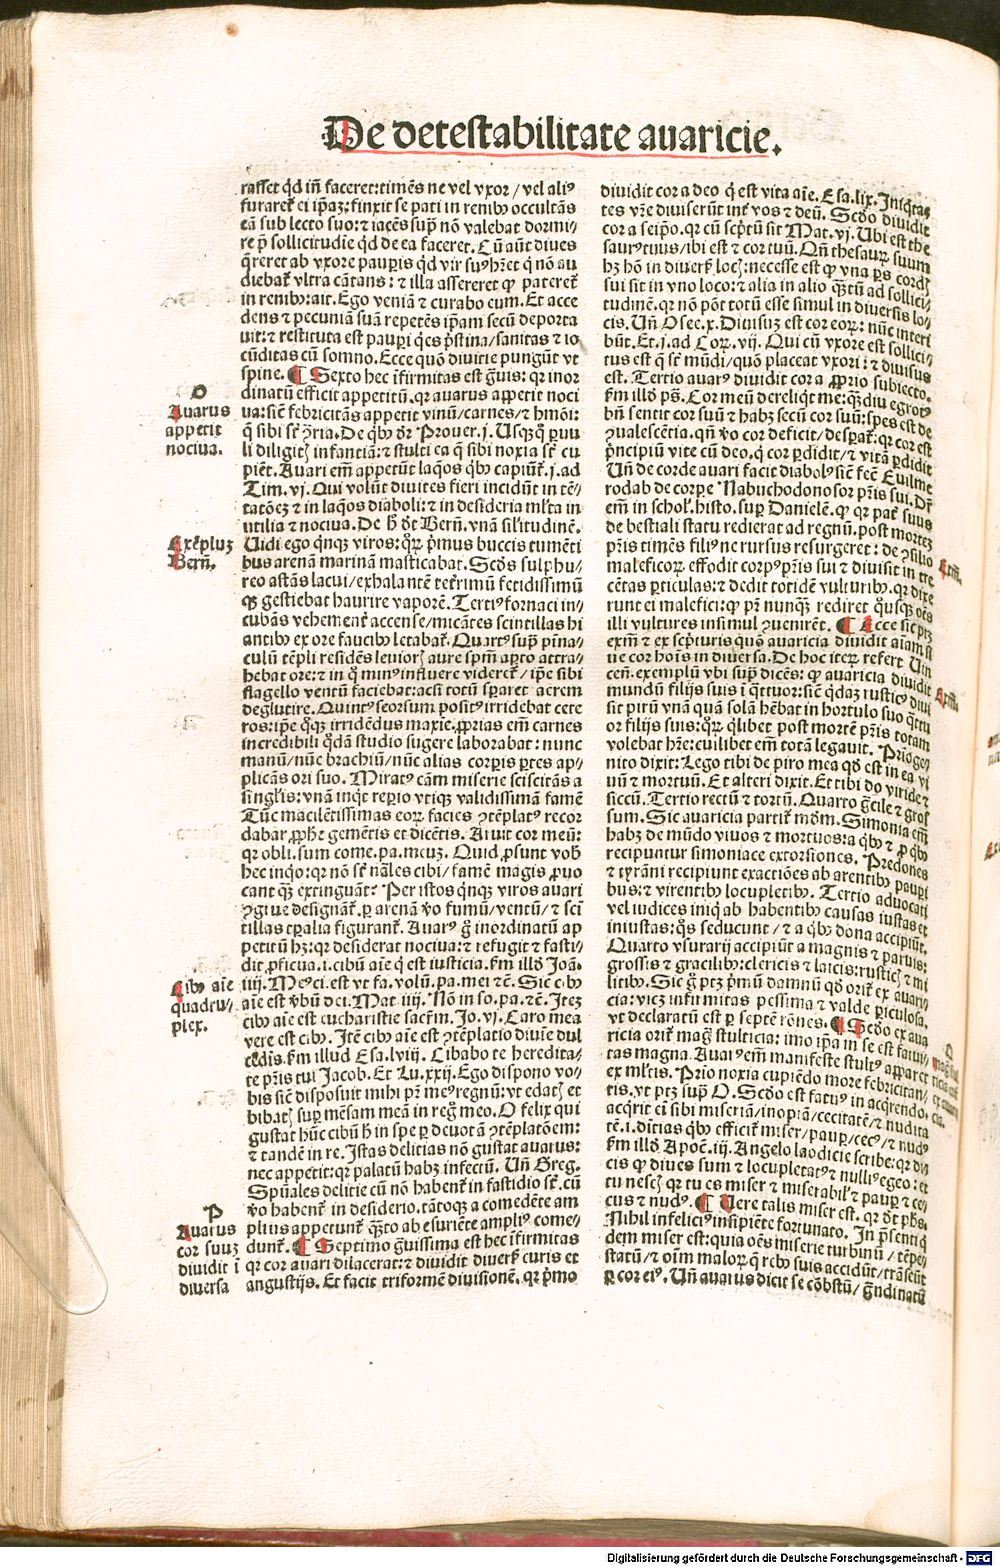 De detestabilitate auaricie.
rasset qd iñ faceret: timẽs ne vel vxor / vel aliꝰ
furaret̃ ei ip̃aꝫ: finxit se pati in renibꝰ occultãs
eã sub lecto suo: ⁊ iacẽs sup̃ nõ valebat dormi⸗
re p̃ sollicitudĩe qd de ea faceret. Cũ aũt diues
q̃reret ab vxore paup̃is qd vir suꝰ hr̃et q̇ nõ au
diebat̃ vltra cãtans: ⁊ illa assereret ꝙ pateret̃
in renibꝰ: ait. Ego veniã ⁊ curabo eum. Et acce
dens ⁊ pecuniã suã repetẽs ip̃am secũ deporta
uit: ⁊ restituta est paup̃i q̃es p̃stina / sanitas ⁊ io
cũditas cũ somno. Ecce quõ diuitie pungũt vt
spine. ¶ Sexto hec ĩfirmitas est g̃uis: qꝛ inor
dinatũ efficit appetitũ. qꝛ auarus appetit noci
ua: sicut̃ febricitãs appetit vinũ / carnes / ⁊ hmõi:
q̃ sibi st̃ ꝯ̃ria. De qbꝰ dr̃ Prouer. j. Usqꝫq̊ puu
li diligitꝭ infantiã: ⁊ stulti ea q̃ sibi noxia st̃ cu
piẽt. Auari em̃ appetũt laq̃os qbꝰ capiũt̃. j. ad
Tim. vj. Qui volũt diuites fieri incidũt in tẽ⸗
tatõeꝫ ⁊ in laq̃os diaboli: ⁊ in desideria ml̃ta in
vtilia ⁊ nociua. De h̃ dt̃ Bern̄. vnã sil̃itudinẽ.
Uidi ego q̃nqꝫ viros: q̃ꝝ p̃mus buccis tumẽti
bus arenã marinã masticabat. Scd̃s sulphu⸗
reo astãs lacui / exhalantẽ teterrimũ fetidissimũ
qꝫ gestiebat haurire vaporẽ. Tertiꝰ fornaci in⸗
cubãs vehement̃ accense / micãtes scintillas hi
antibꝰ ex ore faucibꝰ letabat̃. Quartꝰ sup̃ pĩna⸗
culũ tẽpli residẽs leuiorẽ aure sp̃m aꝑto attra⸗
hebat ore: ⁊ in q̃ minꝰ influere videret̃ / ip̃e sibi
flagello ventũ faciebat: acsi totũ sꝑaret aerem
deglutire. Quintꝰ seorsum positꝰ irridebat cete
ros: ip̃e q̊qꝫ irridẽdus maxĩe. ꝓprias em̃ carnes
incredibili q̊dã studio sugere laborabat: nunc
manũ / nũc brachiũ / nũc alias corꝑis ꝑtes ap⸗
plicãs ori suo. Miratꝰ cãm miserie sciscitãs a
singl̃is: vnã inqt̃ reꝑio vtiqꝫ validissimã famẽ
Tũc macilẽtissimas eoꝝ facies ꝯtẽplatꝰ recor
dabar ꝓph̃e gemẽtis et dicẽtis. Aruit cor meũ:
qꝛ obli. sum come. pa. meuꝫ. Quid ꝓsunt vob̃
hec inqo: qꝛ nõ st̃ nãles cibi / famẽ magis ꝓuo
cant qꝫ extinguãt? Per istos q̃nqꝫ viros auari
ꝯgrue designãt̃. ꝑ arenã ṽo fumũ / ventũ / ⁊ scĩ
tillas tꝑalia figurant̃. Auarꝰ g̊ inordinatũ ap
petitũ hꝫ: qꝛ desiderat nociua: ⁊ refugit ⁊ fasti⸗
dit ꝓficua. i. cibũ aĩe q̇ est iusticia. fm̃ illđ Joã.
iiij. Meꝰ ci. est vt fa. volũ. pa. mei ⁊c̃. Sic cibꝰ
aĩe est ṽbũ dei. Mat. iiij. Nõ in so. pa. ⁊c̃. Iteꝫ
cibꝰ aĩe est eucharistie sacr̃m. Jo. vj. Caro mea
vere est cibꝰ. Itẽ cibꝰ aĩe est ꝯtẽplatio diuĩe dul
cedĩs. fm̃ illud Esa. lviii. Cibabo te heredita⸗
te p̃ris tui Jacob. Et Lu. xxij. Ego dispono vo⸗
bis sicut̃ disposuit mihi pr̃ meꝰ regnũ: vt edatꝭ et
bibatꝭ suꝑ mẽsam meã in reg̊ meo. O felix qui
gustat hũc cibũ h̃ in spe ꝑ deuotã ꝯtẽplatõem:
⁊ tandẽ in re. Istas delitias nõ gustat auarus:
nec appetit: qꝛ palatũ habꝫ infectũ. Uñ Greg.
Sp̃uales delitie cũ nõ habent̃ in fastidio st̃. cũ
ṽo habent̃ in desiderio. tãtoqꝫ a comedẽte am
plius appetunt̃ q̃ꝫto ab esuriẽte ampliꝰ come⸗
dunt̃. ¶ Septimo g̃uissima est hec ĩfirmitas
qꝛ cor auari dilacerat: ⁊ diuidit diuersꝭ curis et
angustijs. Et facit triformẽ diuisionẽ. qꝛ p̃mo
O
Auarus
appetit
nociua.
Exẽpluꝫ
Bern̄.
Cibꝰ aĩe
quadru⸗
plex.
P
Auarus
cor suuꝫ
diuidit ĩ
diuersa
diuidit cor a deo q̇ est vita aĩe. Esa. lix. Iniq̃ta
tes vr̃e diuiserũt int̃ vos ⁊ deũ. Scđo diuidit
cor a seip̃o. qꝛ cũ scp̃tũ sit Mat. vj. Ubi est the
saurꝰ tuus / ibi est ⁊ cor tuũ. Qñ thesauꝝ suum
hꝫ hõ in diuersꝭ locꝭ: necesse est ꝙ vna ꝑs cordꝭ
sui sit in vno loco: ⁊ alia in alio q̃ꝫtũ ad sollici⸗
tudinẽ. qꝛ nõ põt totũ esse simul in diuersis lo⸗
cis. Uñ Osee. x. Diuisuꝫ est cor eoꝝ: nũc interi
bũt. Et. j. ad Coꝝ. vij. Qui cũ vxore est sollici⸗
tus est q̃ st̃ mũdi / quõ placeat vxori: ⁊ diuisus
est. Tertio auarꝰ diuidit cor a ꝓprio subiecto.
fm̃ illđ ps̃. Cor meũ dereliqt̃ me: q̃ꝫdiu egrotꝰ
bñ sentit cor suũ ⁊ habꝫ secũ cor suũ: spes est de
ꝯualescẽtia. qñ ṽo cor deficit / despat̃: qꝛ cor est
p̃ncipiũ vite cũ deo. q̇ cor ꝑdidit / ⁊ vitã ꝑdidit
Uñ de corde auari facit diabolꝰ sicut̃ fec̃ Euilme
rodab de corpe Nabuchodonosor p̃ris sui. Dr̃
em̃ in schol. histo. suꝑ Danielẽ. ꝙ qꝛ pat̃ suus
de bestiali statu redierat ad regnũ. post morteꝫ
p̃ris timẽs filiꝰ ne rursus resurgeret: de ꝯsilio
maleficoꝝ effodit corpꝰ p̃ris sui ⁊ diuisit in tre
cẽtas ꝑticulas: ⁊ dedit totidẽ vulturibꝰ. qꝛ dixe
runt ei malefici: ꝙ pr̃ nunqꝫ rediret q̊usqꝫ oẽs
illi vultures insimul ꝯuenirẽt. ¶ Ecce sic ptꝫ
exm̃ ⁊ ex scp̃turis quõ auaricia diuidit aĩam si
ue cor hoĩs in diuersa. De hoc iteꝝ refert Uin
cen̄. exemplũ vbi sup̃ dicẽs: ꝙ auaricia diuidit
mundũ filijs suis ĩ q̃ttuor: sicut̃ q̃daꝫ iusticꝰ diui
sit pirũ vnã quã solã hẽbat in hortulo suo q̃ttu
or filijs suis: q̃ꝝ q̃libet post mortẽ p̃ris totam
volebat hr̃e: cuilibet em̃ totã legauit. Prioge⸗
nito dixit: Lego tibi de piro mea qđ est in ea vi
uũ ⁊ mortuũ. Et alteri dixit. Et tibi do viride ⁊
siccũ. Tertio rectũ ⁊ tortũ. Quarto g̃cile ⁊ gros
sum. Sic auaricia partit̃ mđm. Simonia em̃
habꝫ de mũdo viuos ⁊ mortuos: a qbꝰ ⁊ ꝓ qbꝰ
recipuntur simoniace extorsiones. Predones
⁊ tyrãni recipiunt exactiões ab arentibꝰ pauꝑi
bus: ⁊ virentibꝰ locupletibꝰ. Tertio aduocati
vel iudices iniq̇ ab habentibꝰ causas iustas et
iniustas: q̊s seducunt / ⁊ a qbꝰ dona accipiũt.
Quarto vsurarij accipiũt a magnis ⁊ paruis:
grossis ⁊ gracilibꝰ: clericis ⁊ laicis: rusticꝭ ⁊ mi
litibꝰ. Sic g̊ ptꝫ p̃mũ damnũ qđ orit̃ ex auari⸗
cia: vicꝫ infirmitas pessima ⁊ valde ꝑiculosa.
vt declaratũ est ꝑ septẽ rõnes. ¶ Scđo ex aua
ricia orit̃ mag̃ stulticia: imo ip̃a in se est fatui⸗
tas magna. Auarꝰ em̃ manifeste stultꝰ apparet
ex ml̃tis. Prĩo noxia cupiẽdo more febricitan⸗
tis. vt ptꝫ sup̃ O. Scđo est fatuꝰ in acq̃rendo.
acq̃rit ei̇ sibi miseriã / inopiã / cecitatẽ / ⁊ nudita
tẽ. i. ditias qbꝰ efficit̃ miser / pauꝑ / cecꝰ / ⁊ nudꝰ
fm̃ illđ Apoc̃. iij. Angelo laodicie scribe: qꝛ di⸗
cis ꝙ diues sum ⁊ locupletatꝰ ⁊ nulliꝰ egeo: et
tu nescꝭ qꝛ tu es miser ⁊ miserabil̃ ⁊ pauꝑ ⁊ ce⸗
cus ⁊ nudꝰ. ¶ Uere talis miser est. qꝛ dt̃ ph̃s.
Nihil infeliciꝰ insipiẽte fortunato. In p̃senti q̇
dem miser est: quia oẽs miserie turbinũ / tẽpe⸗
statũ / ⁊ oĩm maloꝝ q̃ rebꝰ suis accidũt / trãseũt
ꝑ cor eiꝰ. Uñ auarus dicit se cõbstũ / g̃ndinatũ
Exm̃.
Exm̃.
Q